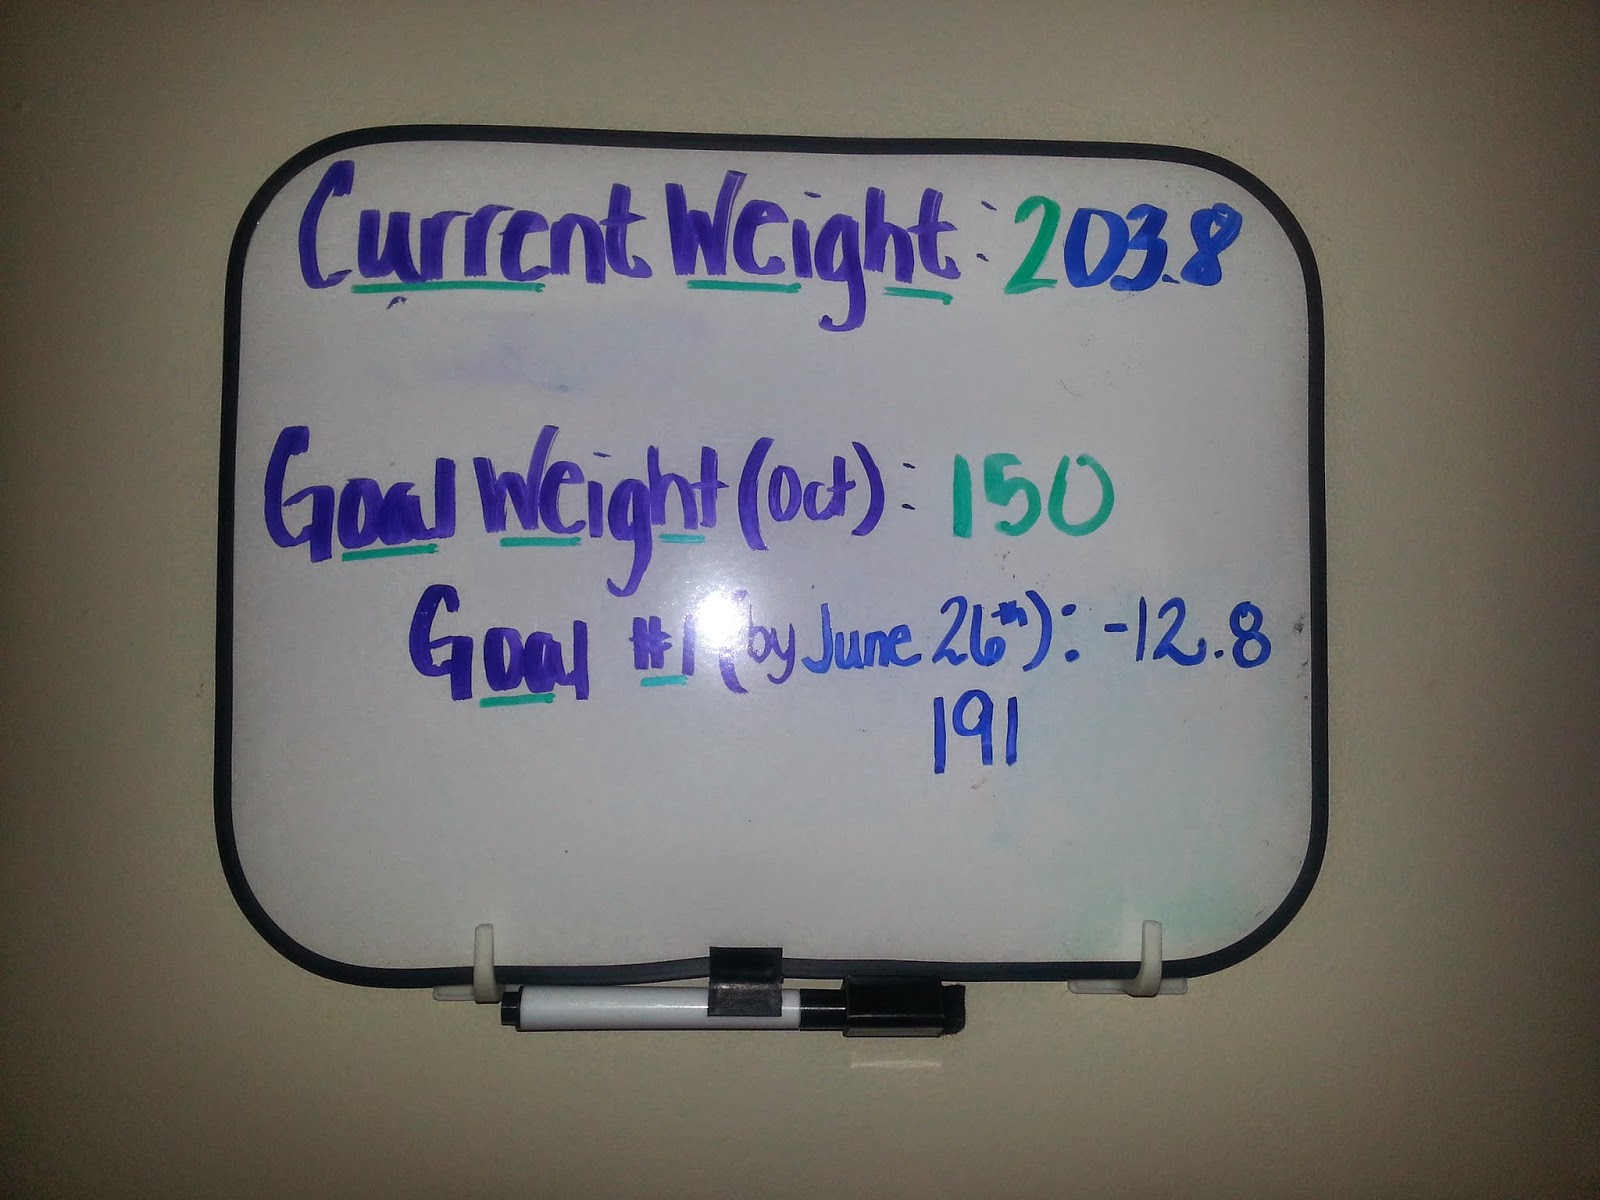 Current Weight: 203.8
Goal Weight (Oct): 150
Goal #1 (by June 26th): -12.8
191